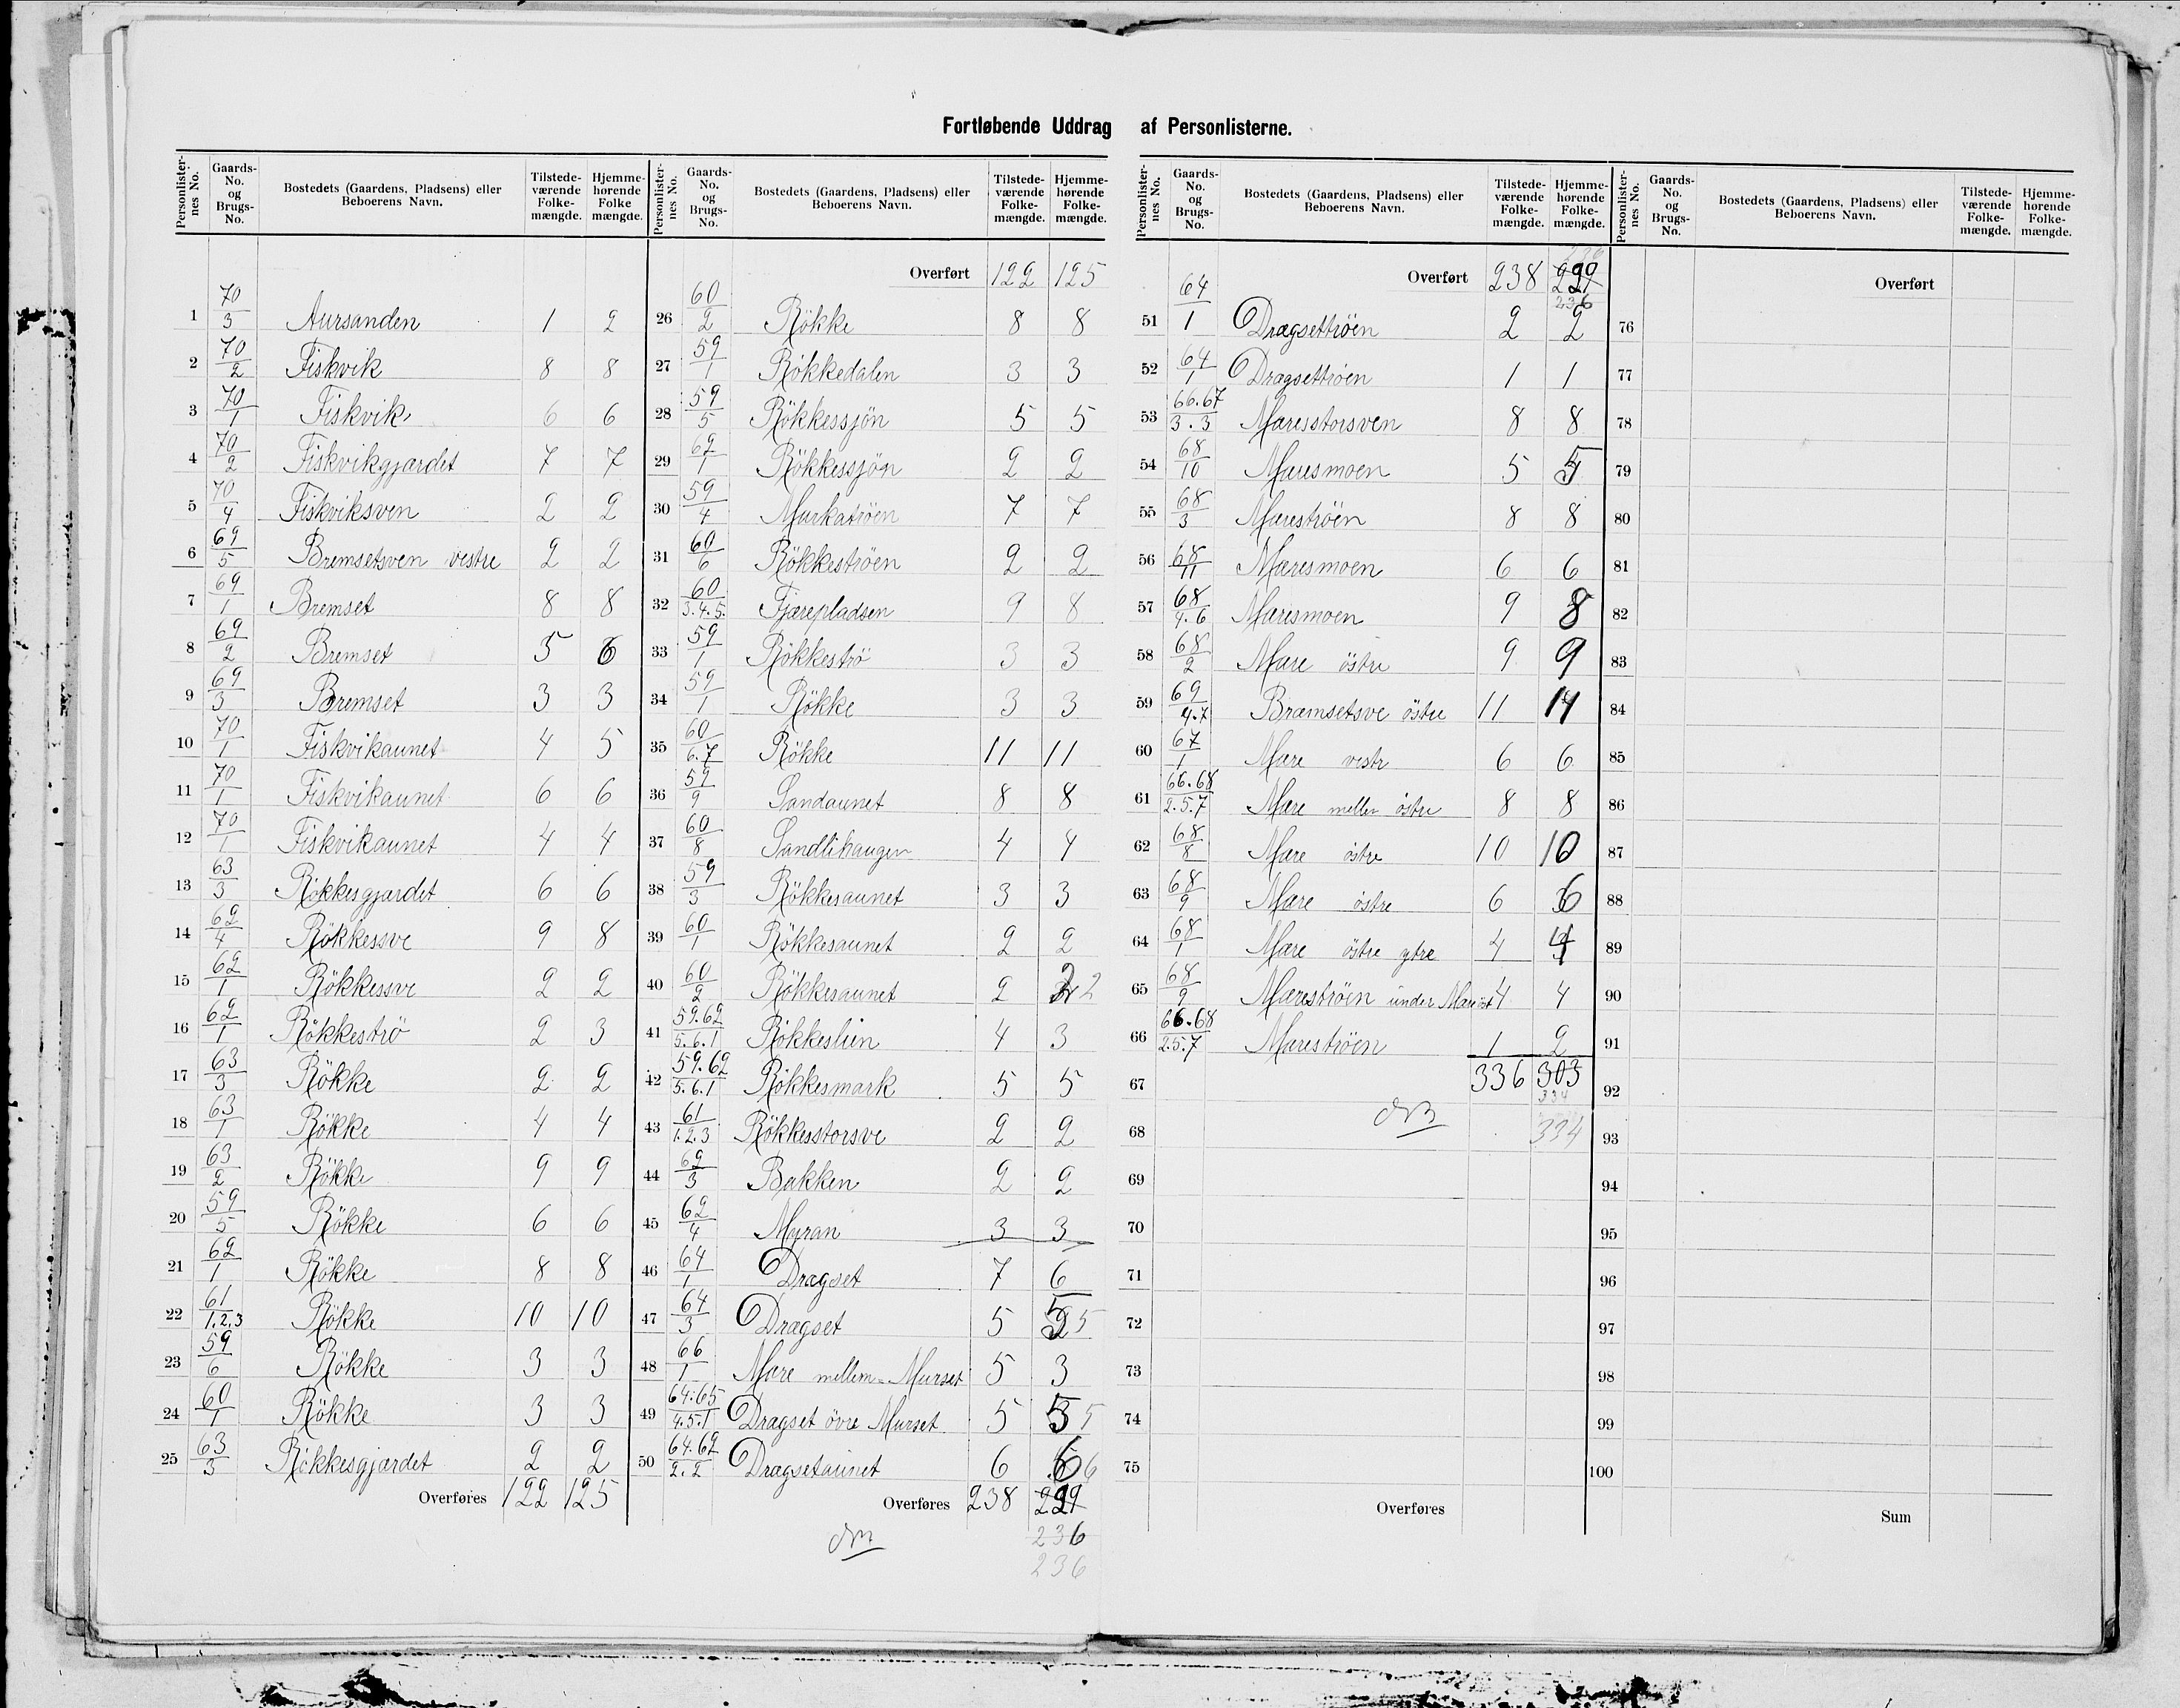 Fortløbende Uddrag af Personlisterne.
Personlister-nes No. Gaards-No. og Brugs-No. Bostedets (Gaardens, Pladsens) eller Beboerens Navn. Tilstede-værende Folke-mængde. Hjemme-hørende Folke mængde.
1 70/3 Aursanden 1 2
2 70/2 Fiskvik 8 8
3 70/1 Fiskvik 6 6
4 70/2 Fiskvikgjærdet 7 7
5 70/4 Fiskviksven 2 2
6 69/5 Bremsetsven vestre 2 2
7 69/1 Bremset 8 8
8 69/2 Bremset 5 6
9 69/3 Bremset 3 3
10 70/1 Fiskvikaunet 4 5
11 70/1 Fiskvikaunet 6 6
12 70/1 Fiskvikaunet 4 4
13 63/3 Rökkesgjærdet 6 6
14 62/4 Rökkessve 9 8
15 62/1 Rökkessve 2 2
16 62/1 Rökkeströ 2 3
17 63/3 Rökke 2 2
18 63/1 Rökke 4 4
19 63/2 Rökke 9 9
20 59/5 Rökke 6 6
21 62/1 Rökke 8 8
22 61/1.2.3 Rökke 10 10
23 59/6 Rökke 3 3
24 60/1 Rökke 3 3
25 63/3 Rökkesgjærdet 2 2
Overføres 122 125
Personlister-nes No. Gaards-No. og Brugs-No. Bostedets (Gaardens, Pladsens) eller Beboerens Navn. Tilstede-værende Folke-mængde. Hjemme-hørende Folke-mængde.
Overført 122 125
26 60/2 Rökke 8 8
27 59/1 Rökkedalen 3 3
28 59/5 Rökkessjön 5 5
29 62/1 Rökkessjön 2 2
30 59/4 Murkatröen 7 7
31 60/6 Rökkeströen 2 2
32 60/3.4.5. Fjærepladsen 9 8
33 59/1 Rökkeströ 3 3
34 59/1 Rökke 3 3
35 60/6.7 Rökke 11 11
36 59/9 Sandaunet 8 8
37 60/8 Sandlihaugen 4 4
38 59/3 Rökkesaunet 3 3
39 60/1 Rökkesaunet 2 2
40 60/2 Rökkesaunet 2 2
41 59.62/5.6.1 Rökkeslien 4 3
42 59.62/5.6.1 Rökkesmark 5 5
43 61/1.2.3 Rökkesstorsve 2 2
44 62/3 Bakken 2 2
45 62/4 Myran 3 3
46 64/1 Dragset 7 6
47 64/3 Dragset 5 5
48 66/1 Mære mellem-Murset 5 3
49 64.65/4.5.1 Dragset övre Murset 5 5
50 64.62/2.2 Dragsetaunet 6 6
Overføres 238 229
236
236
Personlister-nes No. Gaards-No. og Brugs-No. Bostedets (Gaardens, Pladsens) eller Beboerens Navn. Tilstede-værende Folke-mængde. Hjemme-hørende Folke-mængde.
Overført 238 229
236
51 64/1 Dragsettröen 2 2
52 64/1 Dragsettröen 1 1
53 66.67/3.3 Mæresstorsven 8 8
54 68/10 Mæresmoen 5 5
55 68/3 Mæreströen 8 8
56 68/11 Mæresmoen 6 6
57 68/4.6 Mæresmoen 9 8
58 68/2 Mære östre 9 9
59 69/4.7 Bramsetsve östre 11 11
60 67/1 Mære vestr 6 6
61 66.68/2.5.7 Mære mellem östre 8 8
62 68/8 Mære östre 10 10
63 68/9 Mære östre 6 6
64 68/1 Mære östre ytre 4 4
65 68/9 Mæreströen under Mære 4 4
66 66.68/2.5.7 Mæreströen 1 2
67 336 303
334
68 334
69
70
71
72
73
74
75
Overføres
Personlister-nes No. Gaards-No. og Brugs-No. Bostedets (Gaardens, Pladsens) eller Beboerens Navn. Tilstede-værende Folke-mængde. Hjemme-hørende Folke-mængde.
Overført
76
77
78
79
80
81
82
83
84
85
86
87
88
89
90
91
92
93
94
95
96
97
98
99
100
Sum